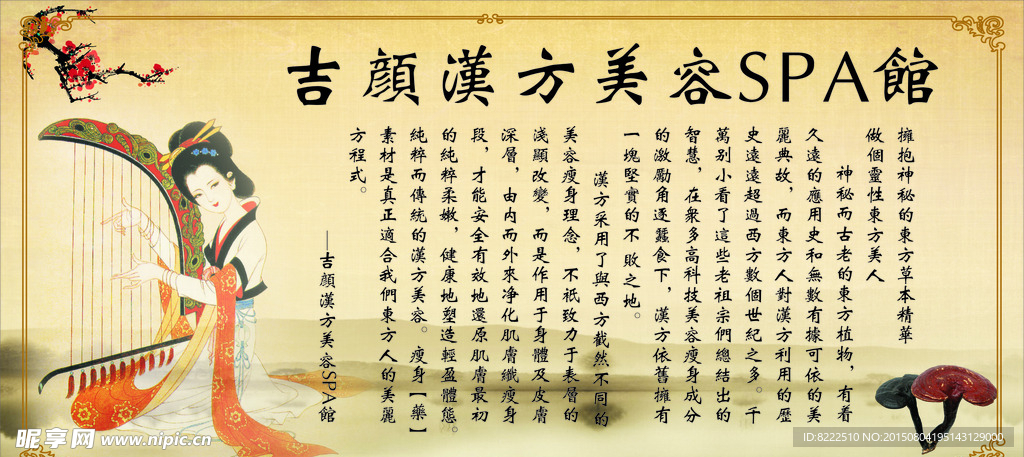 吉顔漢方美容SPA館
擁抱神秘的東方草本精華
做個靈性東方美人
神秘而古老的東方植物，有着
久遠的應用史和無數有據可依的美
麗典故，而東方人對漢方利用的歷
史遠遠超過西方數個世紀之多。千
萬别小看了這些老祖宗們總結出的
智慧，在衆多高科技美容瘦身成分
的激勵角逐蠶食下，漢方依舊擁有
一塊堅實的不敗之地。
漢方采用了與西方截然不同的
美容瘦身理念，不衹致力于表層的
淺顯改變，而是作用于身體及皮膚
深層，由内而外來净化肌膚纖瘦身
段，才能安全有效地還原肌膚最初
的純粹柔嫩，健康地塑造輕盈體態。
純粹而傳統的漢方美容。瘦身【藥】
素材是真正適合我們東方人的美麗
方程式。
——吉顔漢方美容SPA館
昵享网 www.nipic.cn
ID:8222510 NO:20150804195143129000